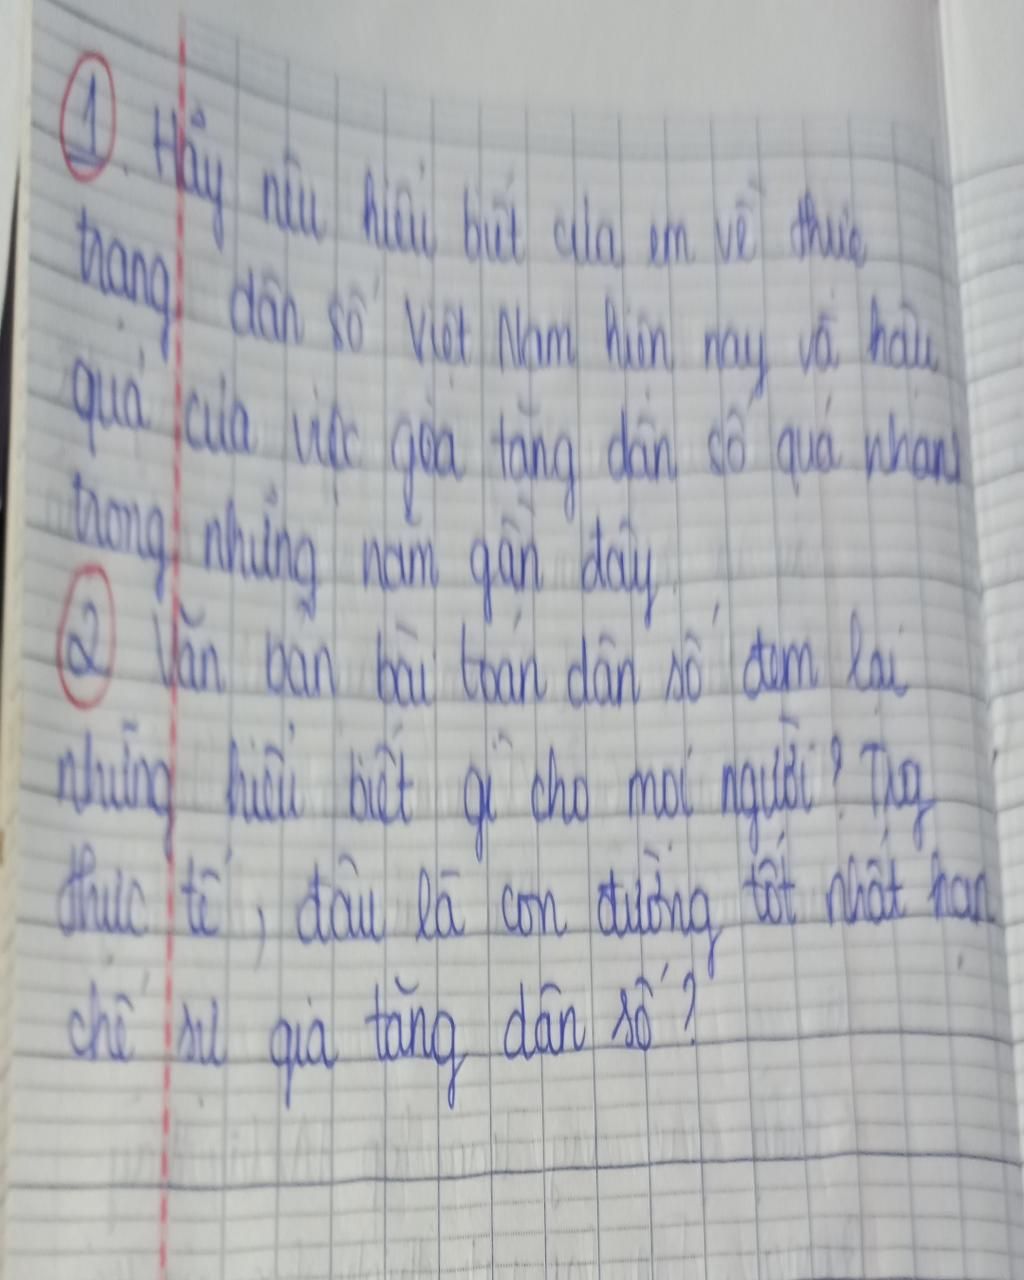 1. Hãy nêu hiểu biết của em về thực
trạng dân số Việt Nam hiện nay và hậu
quả của việc gia tăng dân số quá nhanh
trong những năm gần đây.
2 Văn bản bài toán dân số đem lại
những hiểu biết gì cho mọi người? Trg
thực tế, đâu là con đường tốt nhất hạn
chế sự gia tăng dân số?